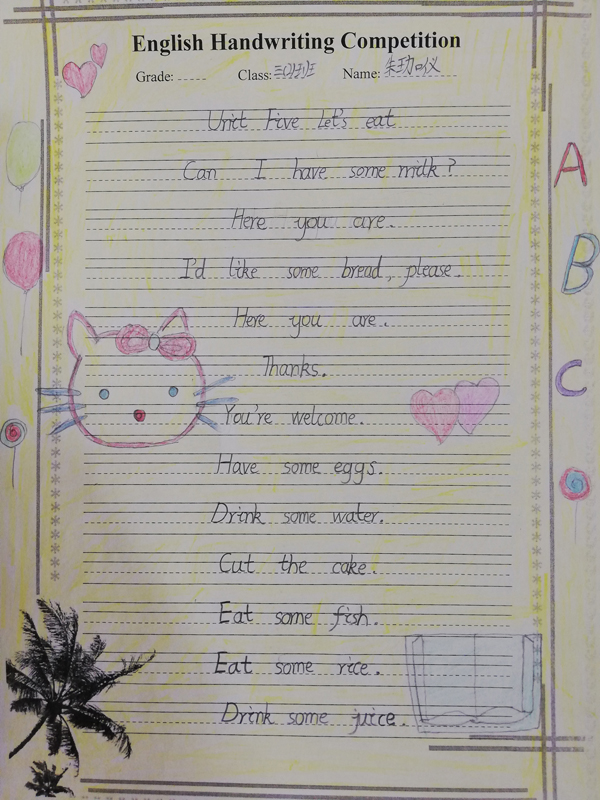 English Handwriting Competition
Grade: Class: 三(2)班 Name: 朱玏仪
Unit Five Let's eat
Can I have some milk?
Here you are.
I'd like some bread, please.
Here you are.
Thanks.
You're welcome.
Have some eggs.
Drink some water.
Cut the cake.
Eat some fish.
Eat some rice.
Drink some juice.
A
B
C